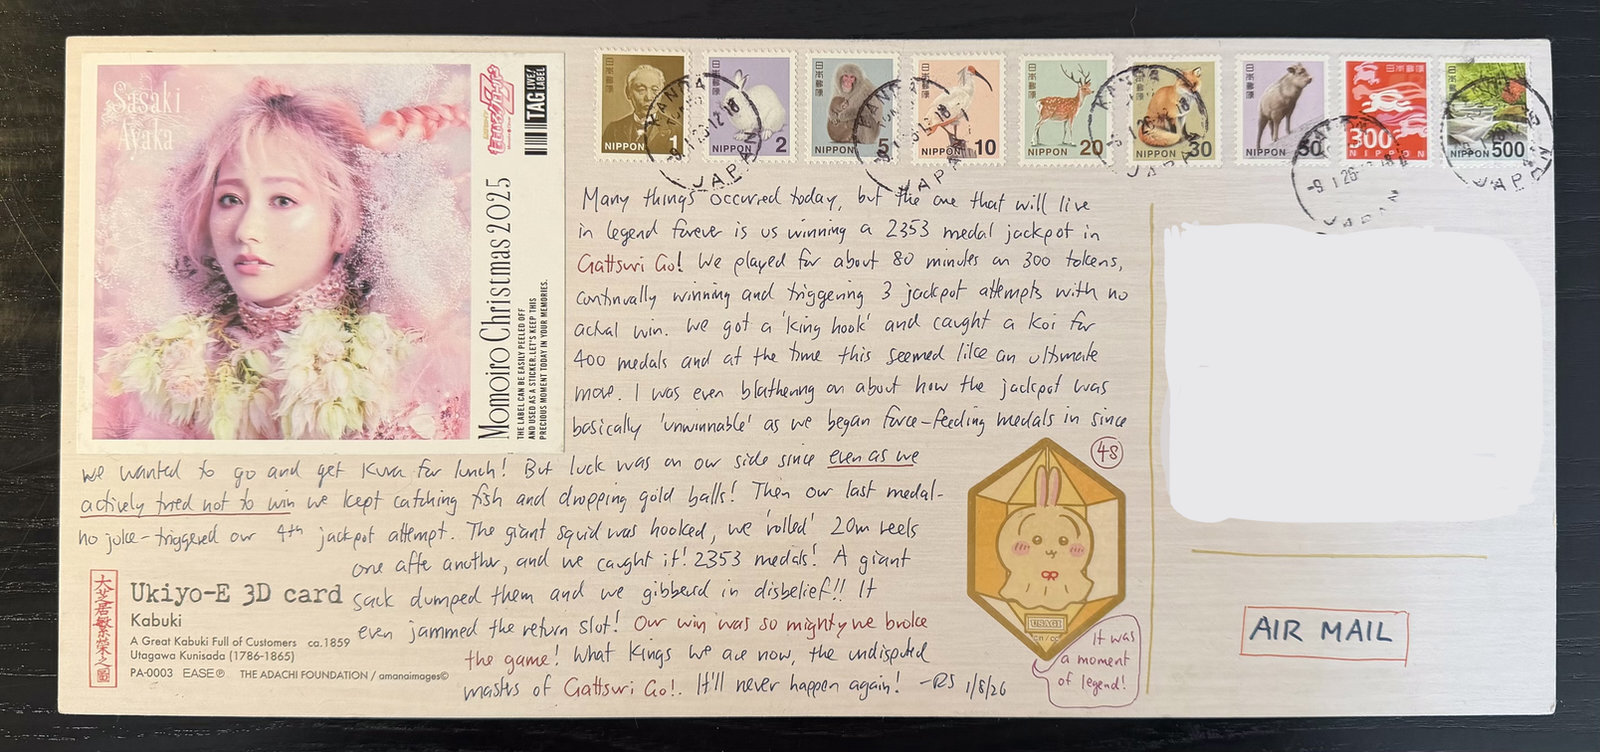 Sasaki
Ayaka
Momoiro Christmas 2025
THE LABEL CAN BE EASILY PEELED OFF
AND USED AS A STICKER. LET'S KEEP THIS
PRECIOUS MOMENT TODAY IN YOUR MEMORIES.
TAG LIVE LABEL
日本郵便
NIPPON 1
日本郵便
NIPPON 2
日本郵便
NIPPON 5
日本郵便
NIPPON 10
日本郵便
NIPPON 20
日本郵便
NIPPON 30
日本郵便
NIPPON 50
日本郵便
300
NIPPON
日本郵便
NIPPON 500
KANDA
JAPAN
Many things occurred today, but the one that will live
in legend forever is us winning a 2353 medal jackpot in
Gattsuri Go! We played for about 80 minutes on 300 tokens,
continually winning and triggering 3 jackpot attempts with no
actual win. We got a 'king hook' and caught a Koi for
400 medals and at the time this seemed like an ultimate
move. I was even blathering on about how the jackpot was
basically 'unwinnable' as we began force-feeding medals in since
we wanted to go and get Kura for lunch! But luck was on our side since even as we
actively tried not to win we kept catching fish and dropping gold balls! Then our last medal-
no joke-triggered our 4th jackpot attempt. The giant squid was hooked, we 'rolled' 20m reels
one after another, and we caught it! 2353 medals! A giant
sack dumped them and we gibbered in disbelief!! It
even jammed the return slot! Our win was so mighty we broke
the game! What kings we are now, the undisputed
masters of Gattsuri Go!. It'll never happen again! -RS 1/8/26
48
USAGI
It was
a moment
of legend!
大芝居繁榮之圖
Ukiyo-E 3D card
Kabuki
A Great Kabuki Full of Customers ca.1859
Utagawa Kunisada (1786-1865)
PA-0003 EASE® THE ADACHI FOUNDATION / amanaimages©
AIR MAIL